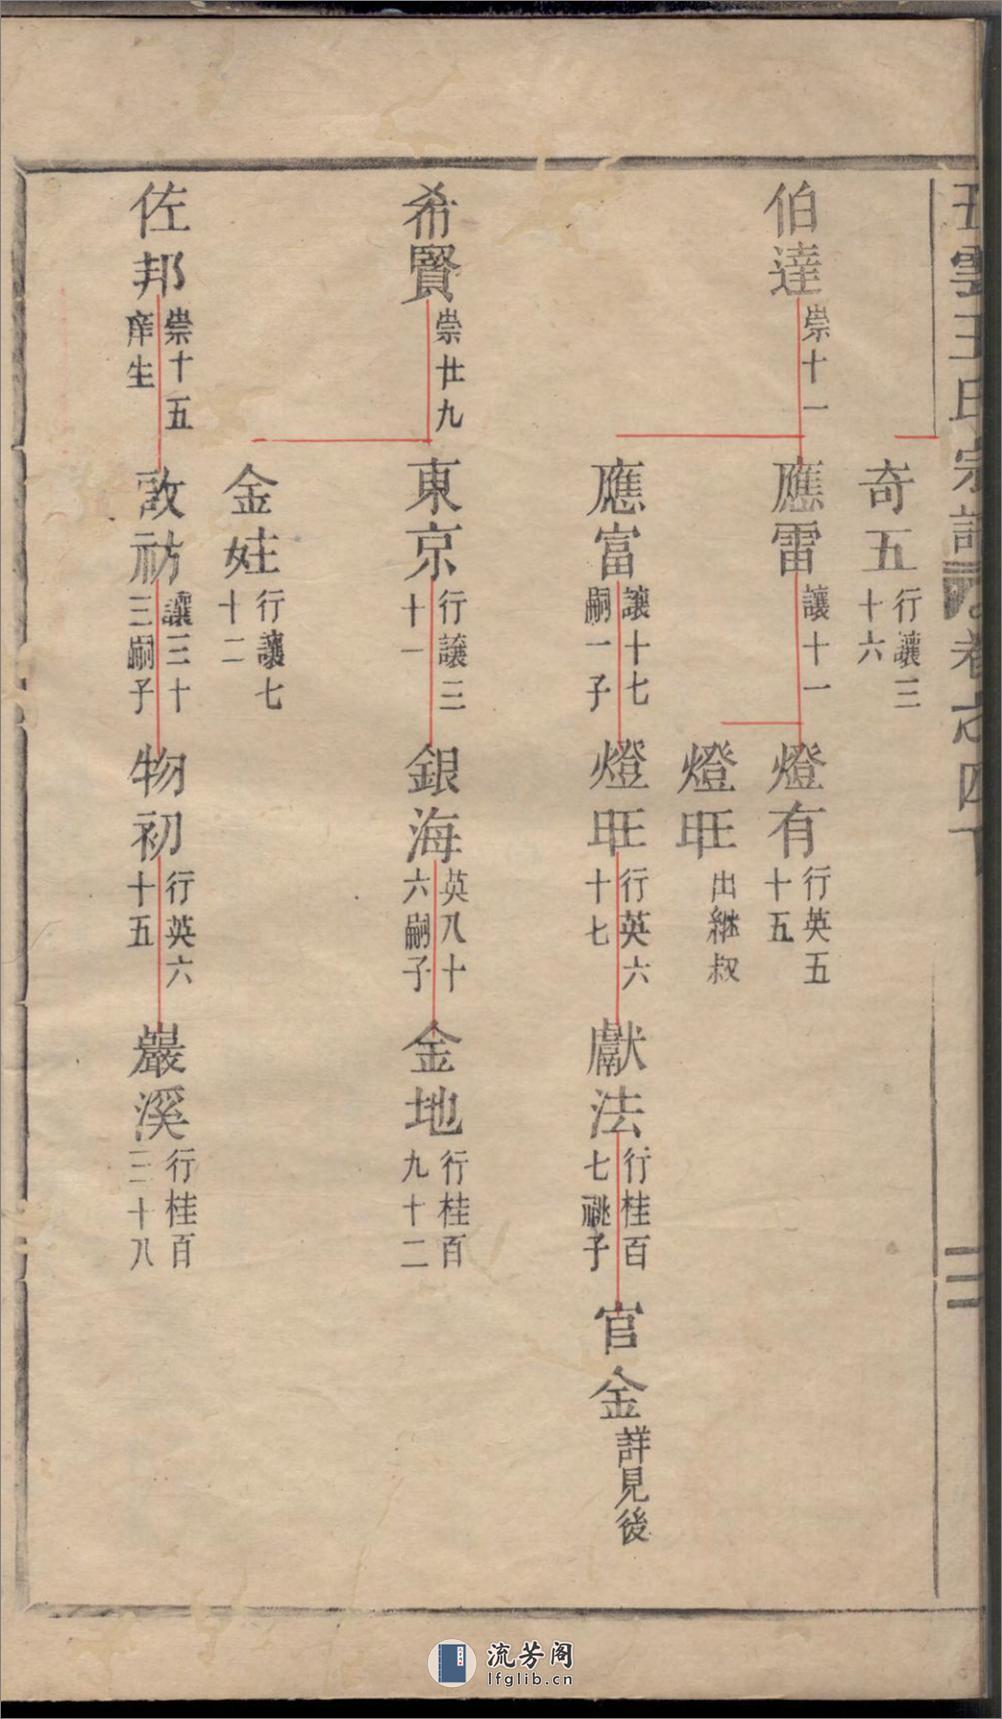 五雲王氏宗譜 卷之四下 二
奇五 行讓三十六
伯達 崇十一
應雷 讓十一
燈有 行英五十五
燈旺 出継叔
應富 讓十七嗣一子
燈旺 行英六十七
獻法 行桂百七祧子
官金 詳見後
希賢 崇廿九
東京 行讓三十一
銀海 英八十六嗣子
金地 行桂百九十二
金妵 行讓七十二
佐邦 崇十五庠生
敦祊 讓三十三嗣子
物初 行英六十五
巖溪 行桂百三十八
流芳阁
lfglib.cn